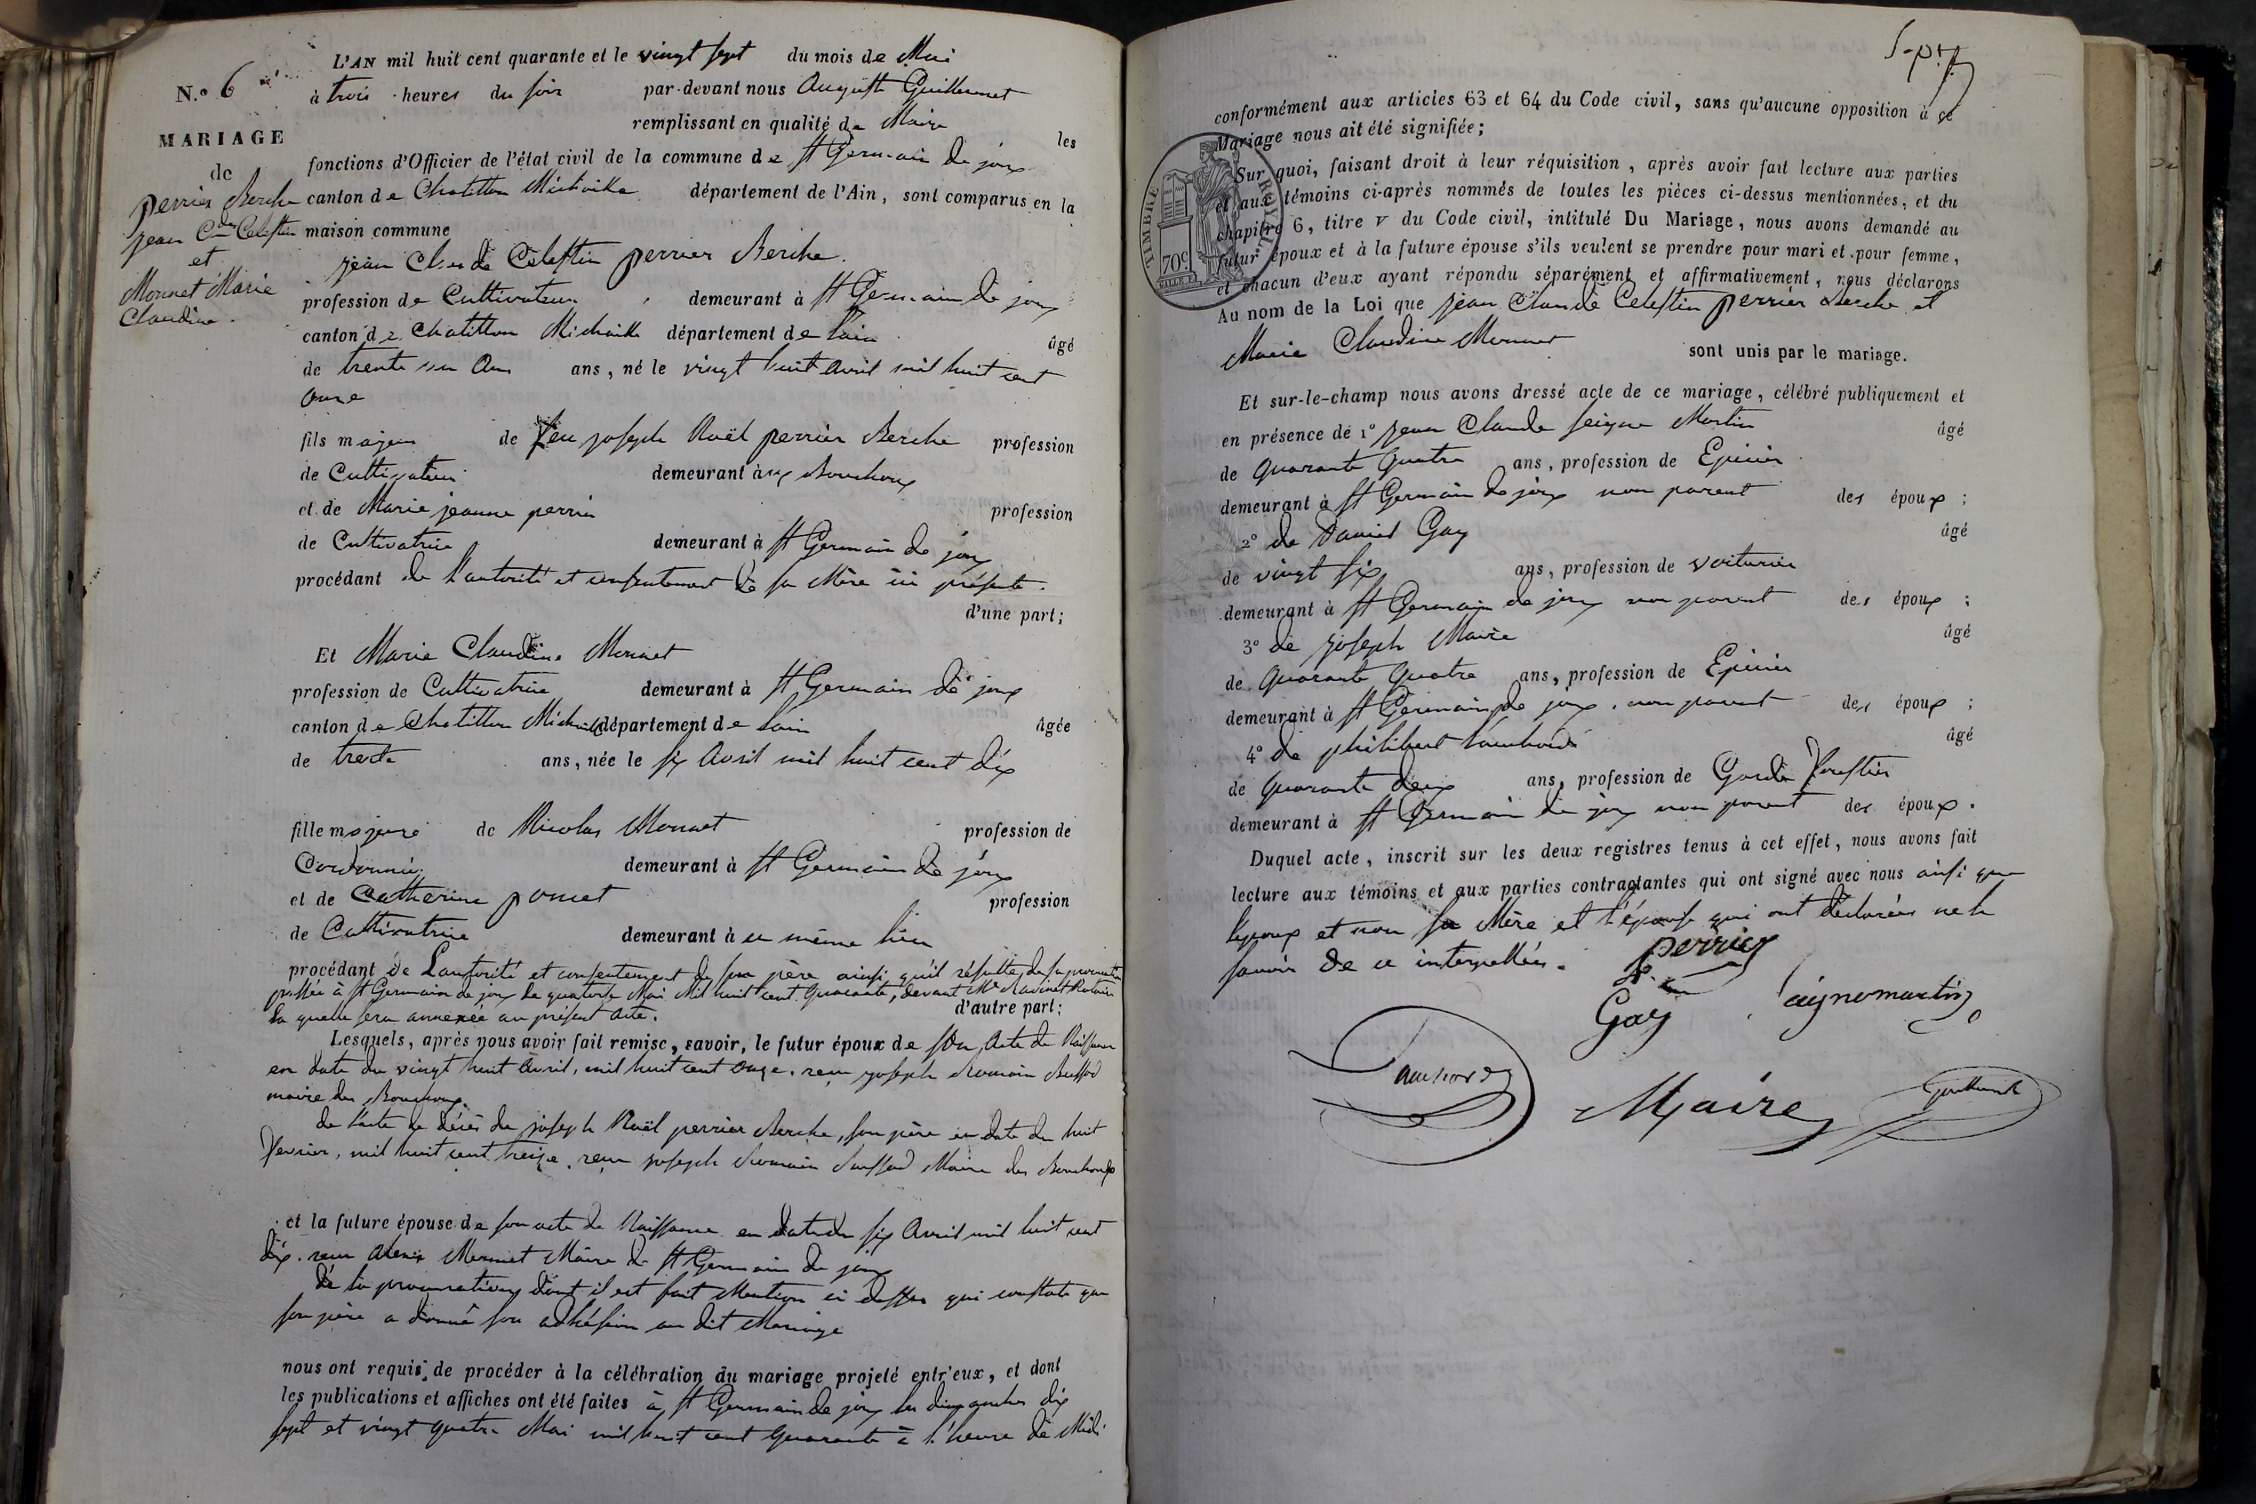 L'AN mil huit cent quarante et le vingt sept du mois de Mai
N.º 6
à trois heures du soir par-devant nous Auguste Guillermet
remplissant en qualité de Maire
les
MARIAGE
fonctions d'Officier de l'état civil de la commune de St Germain de joux
de
perrier Berche
jean Cde Celestin
et
Monnet Marie
Claudine.
canton de Chatillon Michaille département de l'Ain, sont comparus en la
maison commune
jean Claude Celestin perrier Berche.
profession de Cultivateur demeurant à St Germain de joux
canton de Chatillon Michaille département de l'ain âgé
de trente un Ans ans, né le vingt huit avril mil huit cent
onze
fils majeur de feu joseph Noël perrier Berche profession
de Cultivateur demeurant aux Bouchoux
et de Marie jeanne perrier profession
de Cultivatrice demeurant à St Germain de joux
procédant de l'autorité et consentement de sa Mère ici présente.
d'une part;
Et Marie Claudine Monnet
profession de Cultivatrice demeurant à St Germain de joux
canton de Chatillon Michaille département de l'ain âgée
de trente ans, née le six Avril mil huit cent dix
fille majeure de Nicolas Monnet profession de
Cordonnier demeurant à St Germain de joux
et de Catherine poncet profession
de Cultivatrice demeurant à ce même lieu
procédant de L'autorité et consentement de son père ainsi qu'il résulte de sa procuration
passée à St Germain de joux le quatorze Mai Mil huit cent quarante, devant Me Ravinet Notaire
la quelle sera annexée au présent acte. d'autre part;
Lesquels, après nous avoir fait remise, savoir, le futur époux de son Acte de Naissance
en date du vingt huit Avril, mil huit cent onze. reçu joseph Romain
maire des Bouchoux.
de l'acte de décès de joseph Noël perrier Berche, son père en date du huit
fevrier, mil huit cent treize, reçu joseph Romain Maire des Bouchoux
et la future épouse de son acte de Naissance en date du six Avril mil huit cent
dix. reçu Alexis Mermet Maire de St Germain de joux
de la procuration dont il est fait Mention ci dessus qui constate que
son père a donné son adhésion au dit Mariage
nous ont requis de procéder à la célébration du mariage projeté entr'eux, et dont
les publications et affiches ont été faites à St Germain de joux les dimanches dix
sept et vingt quatre Mai mil huit cent quarante à l'heure de Midi
conformément aux articles 63 et 64 du Code civil, sans qu'aucune opposition à ce
Mariage nous ait été signifiée;
TIMBRE ROYAL
70c.
Sur quoi, faisant droit à leur réquisition, après avoir fait lecture aux parties
et aux témoins ci-après nommés de toutes les pièces ci-dessus mentionnées, et du
chapitre 6, titre V du Code civil, intitulé Du Mariage, nous avons demandé au
futur époux et à la future épouse s'ils veulent se prendre pour mari et pour femme,
et chacun d'eux ayant répondu séparément et affirmativement, nous déclarons
Au nom de la Loi que jean Claude Celestin perrier Berche et
Marie Claudine Monnet sont unis par le mariage.
Et sur-le-champ nous avons dressé acte de ce mariage, célébré publiquement et
en présence de 1º jean Claude Seigne Martin âgé
de quarante quatre ans, profession de Epicier
demeurant à St Germain de joux non parent des époux;
2º de Daniel Gay âgé
de vingt six ans, profession de voiturier
demeurant à St Germain de joux non parent des époux;
3º de joseph Maire âgé
de quarante quatre ans, profession de Epicier
demeurant à St Germain de joux. non parent des époux;
4º de philibert âgé
de quarante deux ans, profession de Garde forestier
demeurant à St Germain de joux non parent des époux.
Duquel acte, inscrit sur les deux registres tenus à cet effet, nous avons fait
lecture aux témoins et aux parties contractantes qui ont signé avec nous ainsi que
l'époux et non sa Mère et l'épouse qui ont déclarées ne le
savoir de ce interpellées.
perrier
Gay
Maire